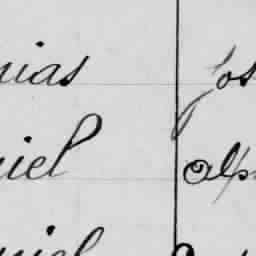 nias Jos
niel Alp
niel